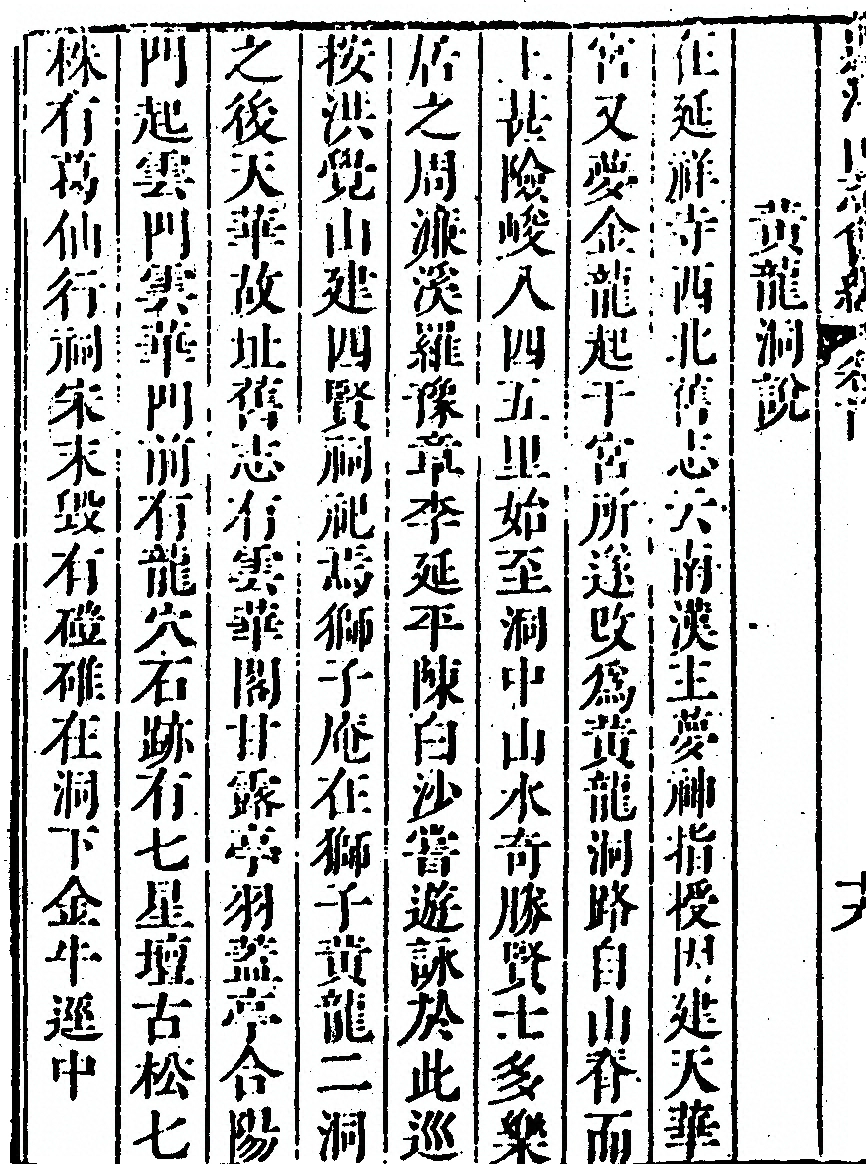 黃龍洞說
在延祥寺西北舊志云南漢主夢神指授因建天華
宮又夢金龍起于宮所遂改為黃龍洞路自山脊而
上甚險峻入四五里始至洞中山水奇勝賢士多樂
居之周濂溪羅豫章李延平陳白沙嘗遊詠於此巡
按洪覺山建四賢祠祀焉獅子庵在獅子黃龍二洞
之後天華故址舊志有雲華閣甘露亭羽蓋亭合陽
門起雲門雲華門前有龍穴石跡有七星壇古松七
株有葛仙行祠宋末毀有磴碓在洞下金牛逕中